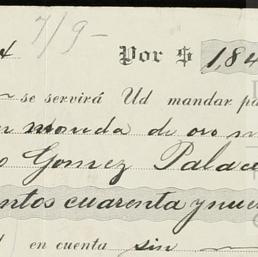 7/9-
Por $ 1,84
se servirá Ud mandar pa
moneda de oro
Gomez Palac
ntos cuarenta y nue
en cuenta sin